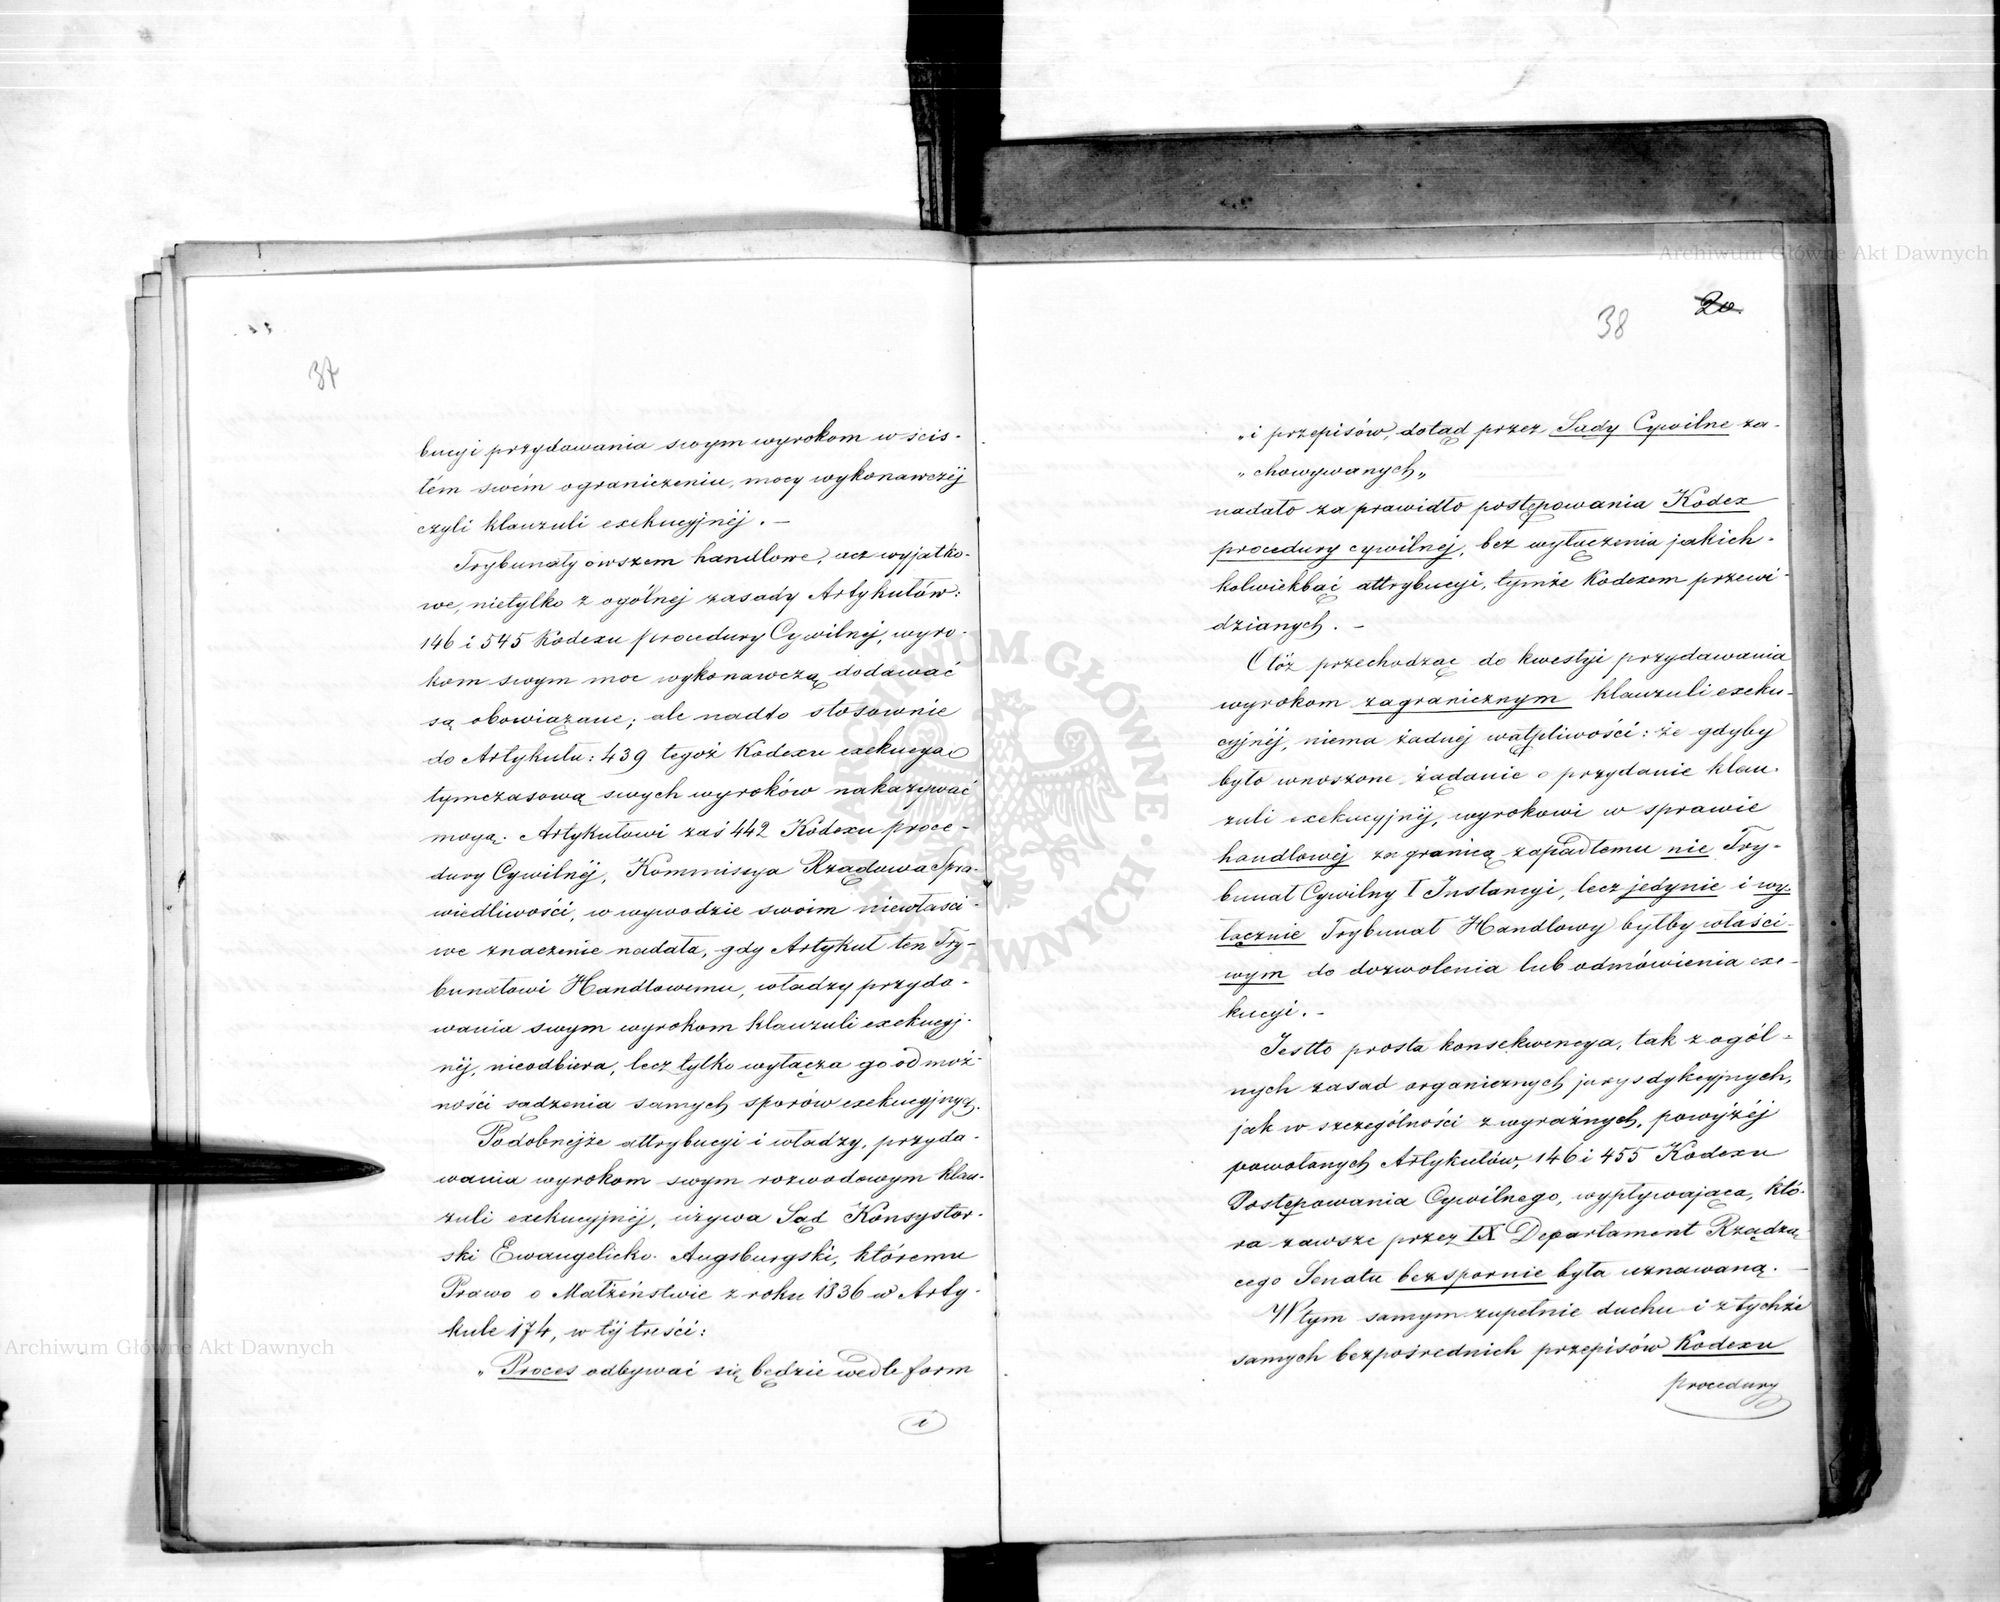 37
bucyi przydawania swym wyrokom w ścis-
łém swém ograniczeniu, mocy wykonawczéj
czyli klauzuli exekucyjnéj. —
Trybunały owszem handlowe, acz wyjątko-
we, nietylko z ogólnej zasady Artykułów:
146 i 545 Kodexu procedury Cywilnéj, wyro-
kom swym moc wykonawczą dodawać
są obowiązane; ale nadto stosownie
do Artykułu: 439 tegoż Kodexu exekucya
tymczasową swych wyroków nakazywać
mogą. Artykułowi zaś 442 Kodexu proce-
dury Cywilnéj, Kommissya Rządowa Spra-
wiedliwości, w wywodzie swoim niewłaści-
we znaczenie nadała, gdy Artykuł ten Try-
bunałowi Handlowemu, władzy przyda-
wania swym wyrokom klauzuli exekucyj-
néj, nieodbiera, lecz tylko wyłącza go od moż-
ności sądzenia samych sporów exekucyjnych.
Podobnejże attrybucyi i władzy, przyda-
wania wyrokom swym rozwodowym klau-
zuli exekucyjnéj, używa Sąd Konsystor-
ski Ewangelicko-Augsburgski, któremu
Prawo o Małżeństwie z roku 1836 w Arty-
kule 174, w téj treści:
„Proces odbywać się będzie wedle form
i
38
20
„i przepisów, dotąd przez Sądy Cywilne za-
„chowywanych„
nadało za prawidło postępowania Kodex
procedury cywilnéj, bez wyłączenia jakich-
kolwiekbąć attrybucyi, tymże Kodexem przewi-
dzianych. —
Otóż przechodząc do kwestyi przydawania
wyrokom zagranicznym klauzuli exeku-
cyjnéj, niema żadnej wątpliwości: że gdyby
było wnoszone żądanie o przydanie klau-
zuli exekucyjnéj, wyrokowi w sprawie
handlowéj za granicą zapadłemu nie Try-
bunał Cywilny I Instancyi, lecz jedynie i wy-
łącznie Trybunał Handlowy byłby właści-
wym do dozwolenia lub odmówienia exe-
kucyi. —
Jestto prosta konsekwencya, tak z ogól-
nych zasad organicznych jurysdykcyjnych,
jak w szczególności z wyraźnych, powyżéj
powołanych Artykułów, 146 i 455 Kodexu
Postępowania Cywilnego, wypływająca, któ-
ra zawsze przez IX Departament Rządzą-
cego Senatu bezspornie była uznawaną. —
W tym samym zupełnie duchu i z tychże
samych bezpośrednich przepisów Kodexu
procedury
Archiwum Główne Akt Dawnych
Archiwum Główne Akt Dawnych
ARCHIWUM GŁÓWNE AKT DAWNYCH